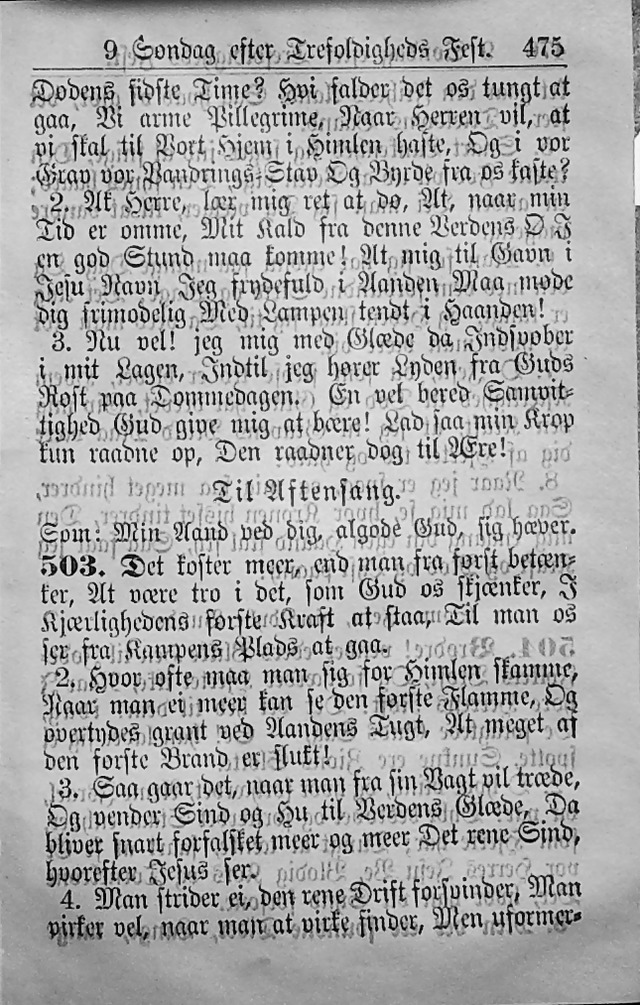 9 Søndag efter Trefoldigheds Fest. 475
Dødens sidste Time? Hvi falder det os tungt at
gaa, Vi arme Pillegrime, Naar Herren vil, at
vi skal til Vort Hjem i Himlen haste, Og i vor
Grav vor Vandrings-Stav Og Byrde fra os kaste?
2. Ak Herre, lær mig ret at dø, At, naar min
Tid er omme, Mit Kald fra denne Verdens Ø I
en god Stund maa komme! At mig til Gavn i
Jesu Navn Jeg frydefuld i Aanden Maa møde
dig frimodelig Med Lampen tendt i Haanden!
3. Nu vel! jeg mig med Glæde da Indsvøber
i mit Lagen, Indtil jeg hører Lyden fra Guds
Røst paa Dommedagen. En vel bered Samvit-
tighed Gud give mig at bære! Lad saa min Krop
kun raadne op, Den raadner dog til Ære!
Til Aftensang.
Som: Min Aand ved dig, algode Gud, sig hæver.
503. Det koster meer, end man fra først betæn-
ker, At være tro i det, som Gud os skjænker, I
Kjærlighedens første Kraft at staa, Til man os
ser fra Kampens Plads at gaa.
2. Hvor ofte maa man sig for Himlen skamme,
Naar man ei meer kan se den første Flamme, Og
overtydes grant ved Aandens Tugt, At meget af
den første Brand er slukt!
3. Saa gaar det, naar man fra sin Vagt vil træde,
Og vender Sind og Hu til Verdens Glæde, Da
bliver snart forfalsket meer og meer Det rene Sind,
hvorefter Jesus ser.
4. Man strider ei, den rene Drift forsvinder, Man
virker vel, naar man at virke finder, Men uformer-